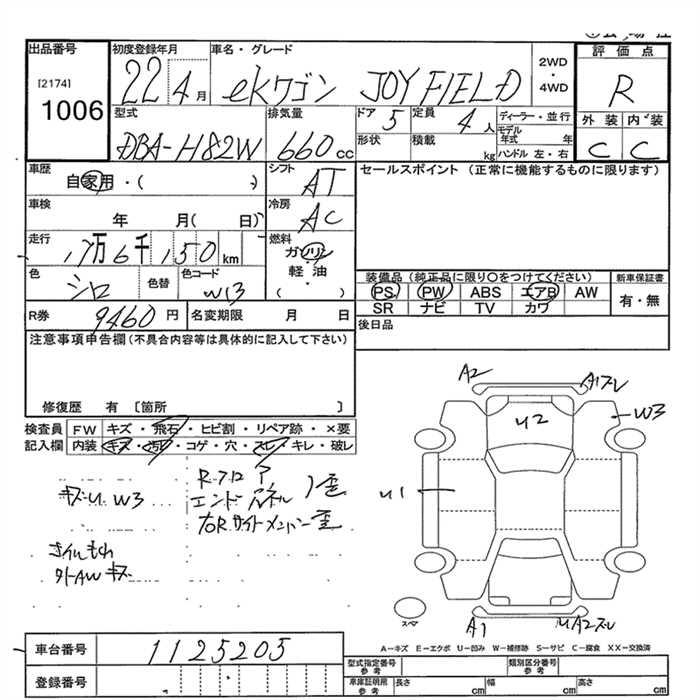 出品番号 初度登録年月 車名・グレード 2WD・4WD 評価点
[2174] 1006 22 4月 ekワゴン JOY FIELD R
型式 排気量 ドア 定員 ディーラー・並行 外装 内装
DBA-H82W 660cc 5 4人 モデル年式 年 C C
形状 積載 kg ハンドル 左・右
車歴 シフト セールスポイント (正常に機能するものに限ります)
自家用・( ) AT
車検 冷房
年 月(日) AC
走行 燃料
17万6千150km ガソリン
軽油
( )
色 色替 色コード
シロ W13
装備品 (純正品に限り○をつけてください) 新車保証書
PS PW ABS エアB AW 有・無
SR ナビ TV カワ
R券 9460円 名変期限 月 日 後日品
注意事項申告欄 (不具合内容等は具体的に記入して下さい)
修復歴 有 〔箇所 〕
検査員 FW キズ・飛石・ヒビ割・リペア跡・×要
記入欄 内装 キズ・汚レ・コゲ・穴・スレ・キレ・破レ
キズU W3
R-フロア
エンドパネル 歪
右Rサイドメンバー歪
オイルもれ
外-AW キズ
A2 A1スレ
U2 W3
U1
スペア A1 UA2スレ
A-キズ E-エクボ U-凹み W-補修跡 S-サビ C-腐食 XX-交換済
車台番号 1125205
登録番号
型式指定番号 参考 類別区分番号 参考
車庫証明用 参考 長さ cm 幅 cm 高さ cm